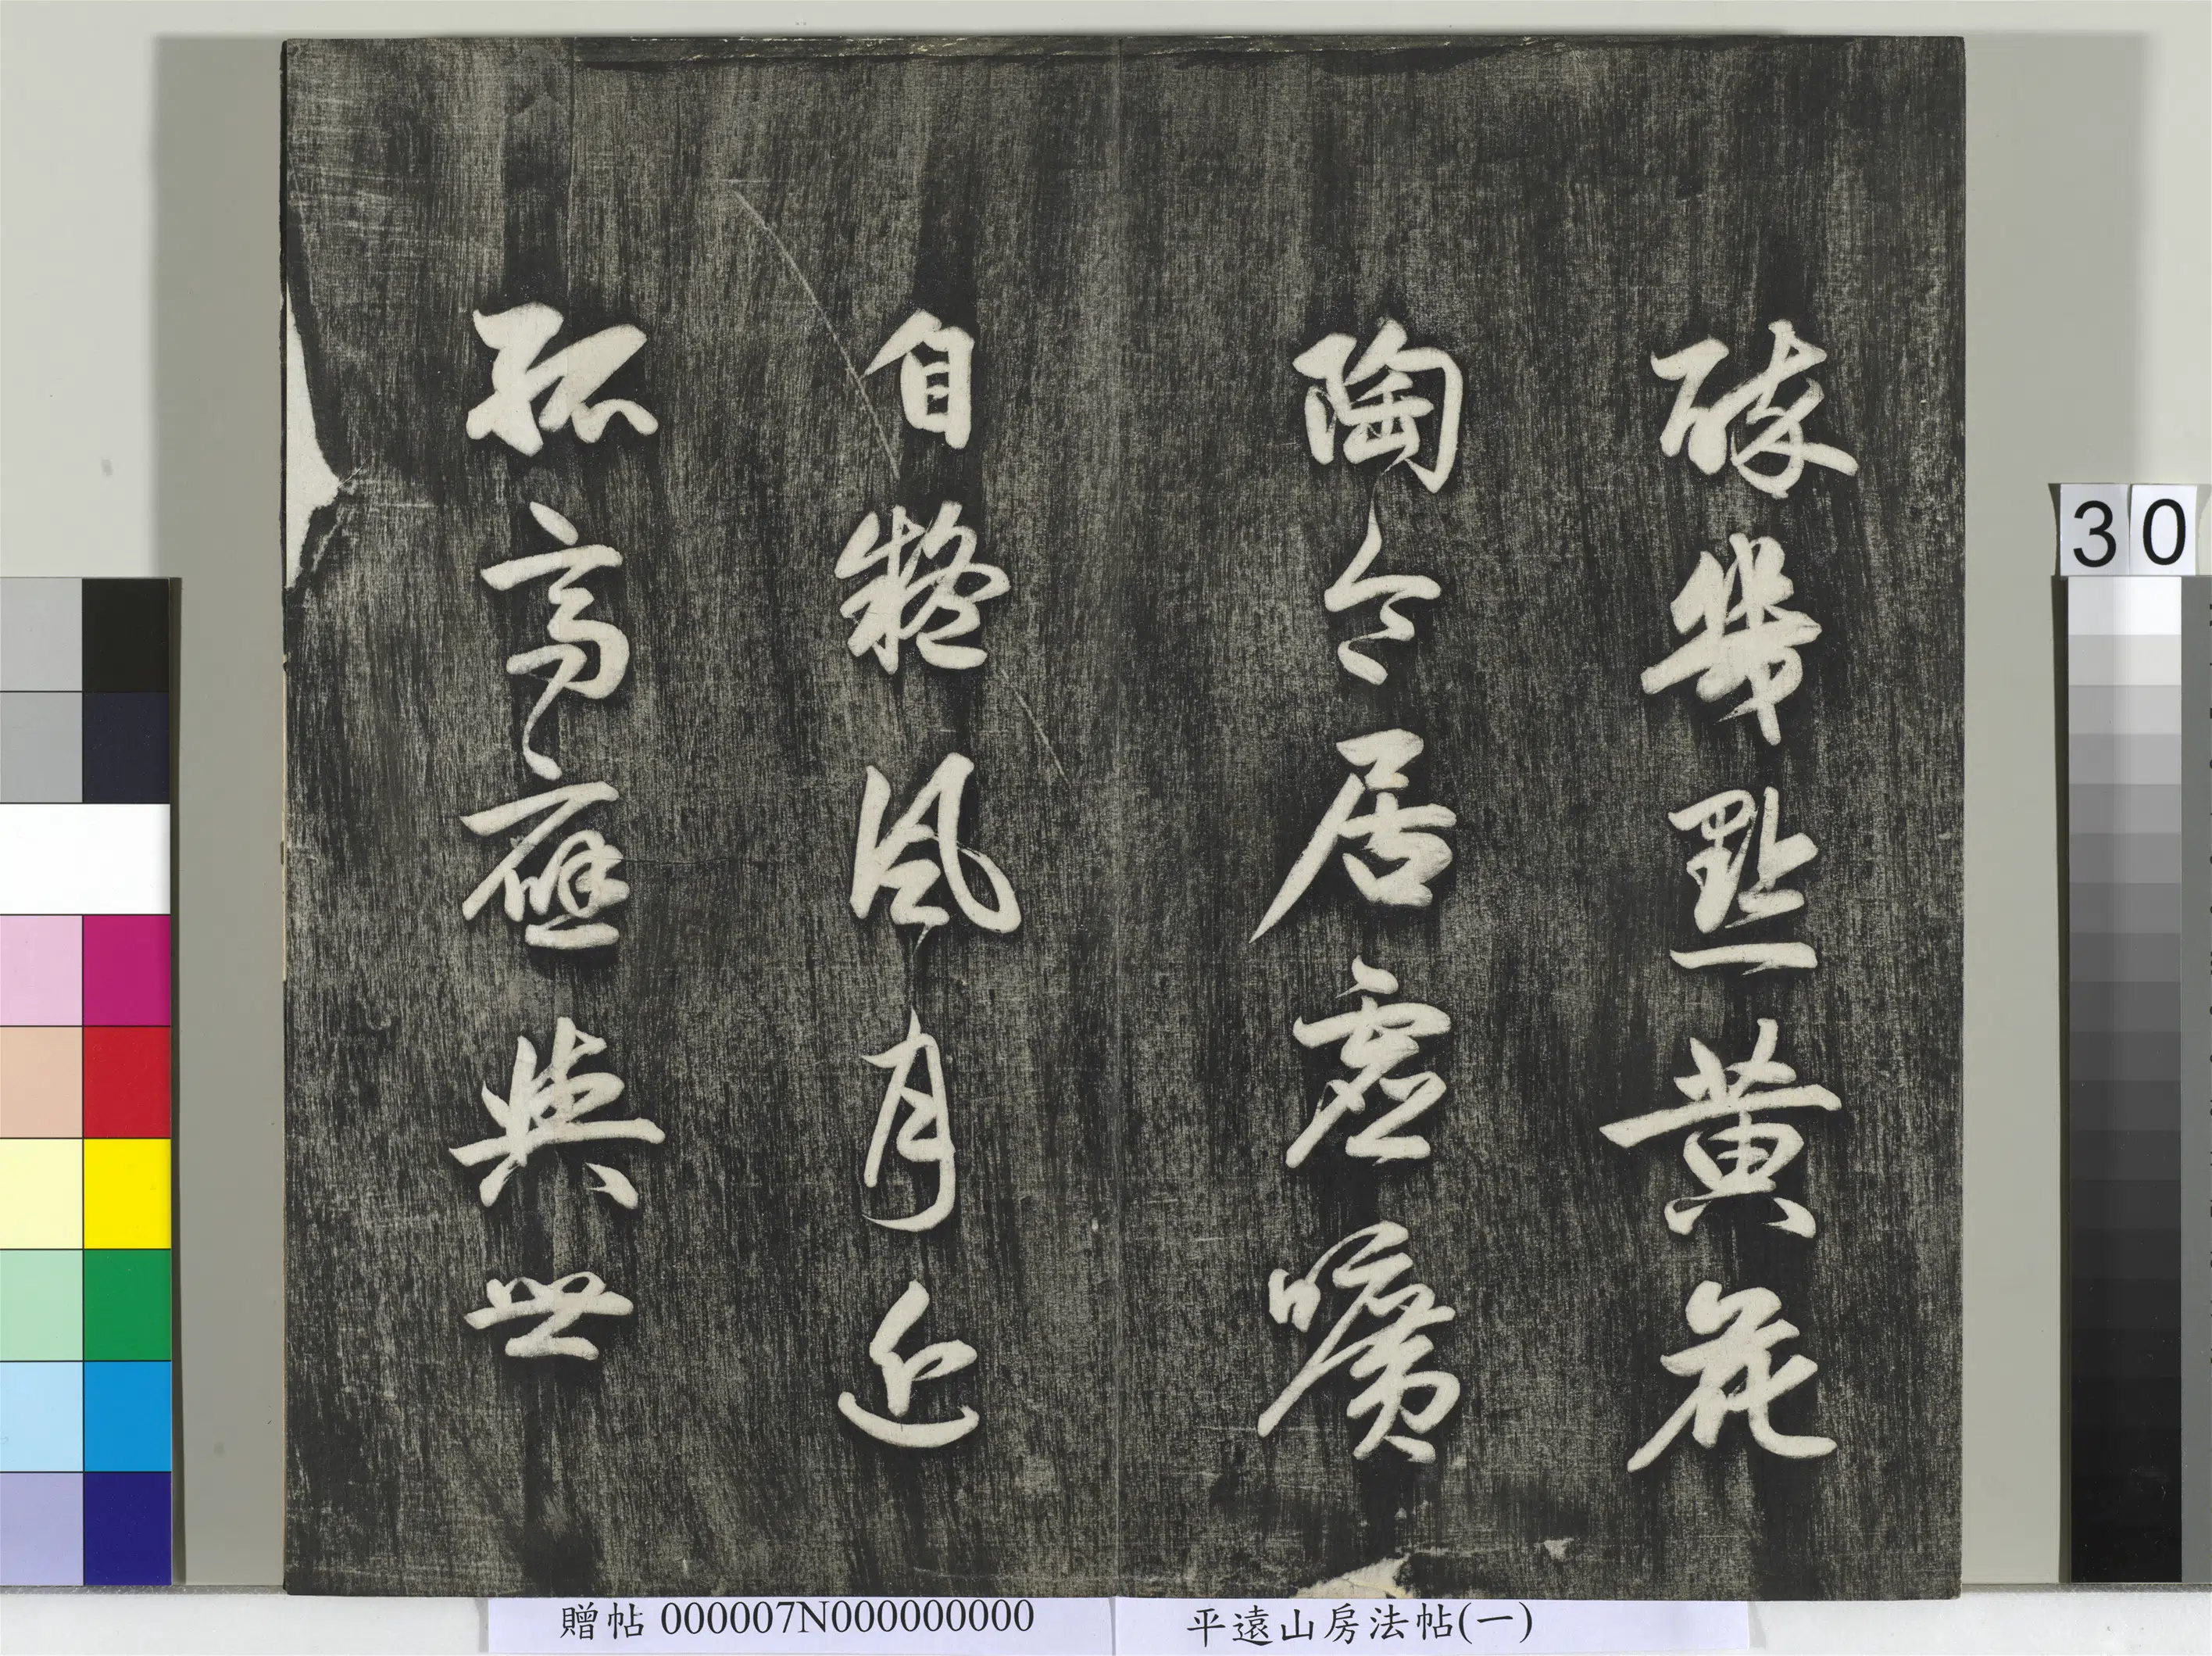 點黃花
陶令居虛曠
自疑風月近
孤高應與世
30
贈帖 000007N000000000
平遠山房法帖(一)